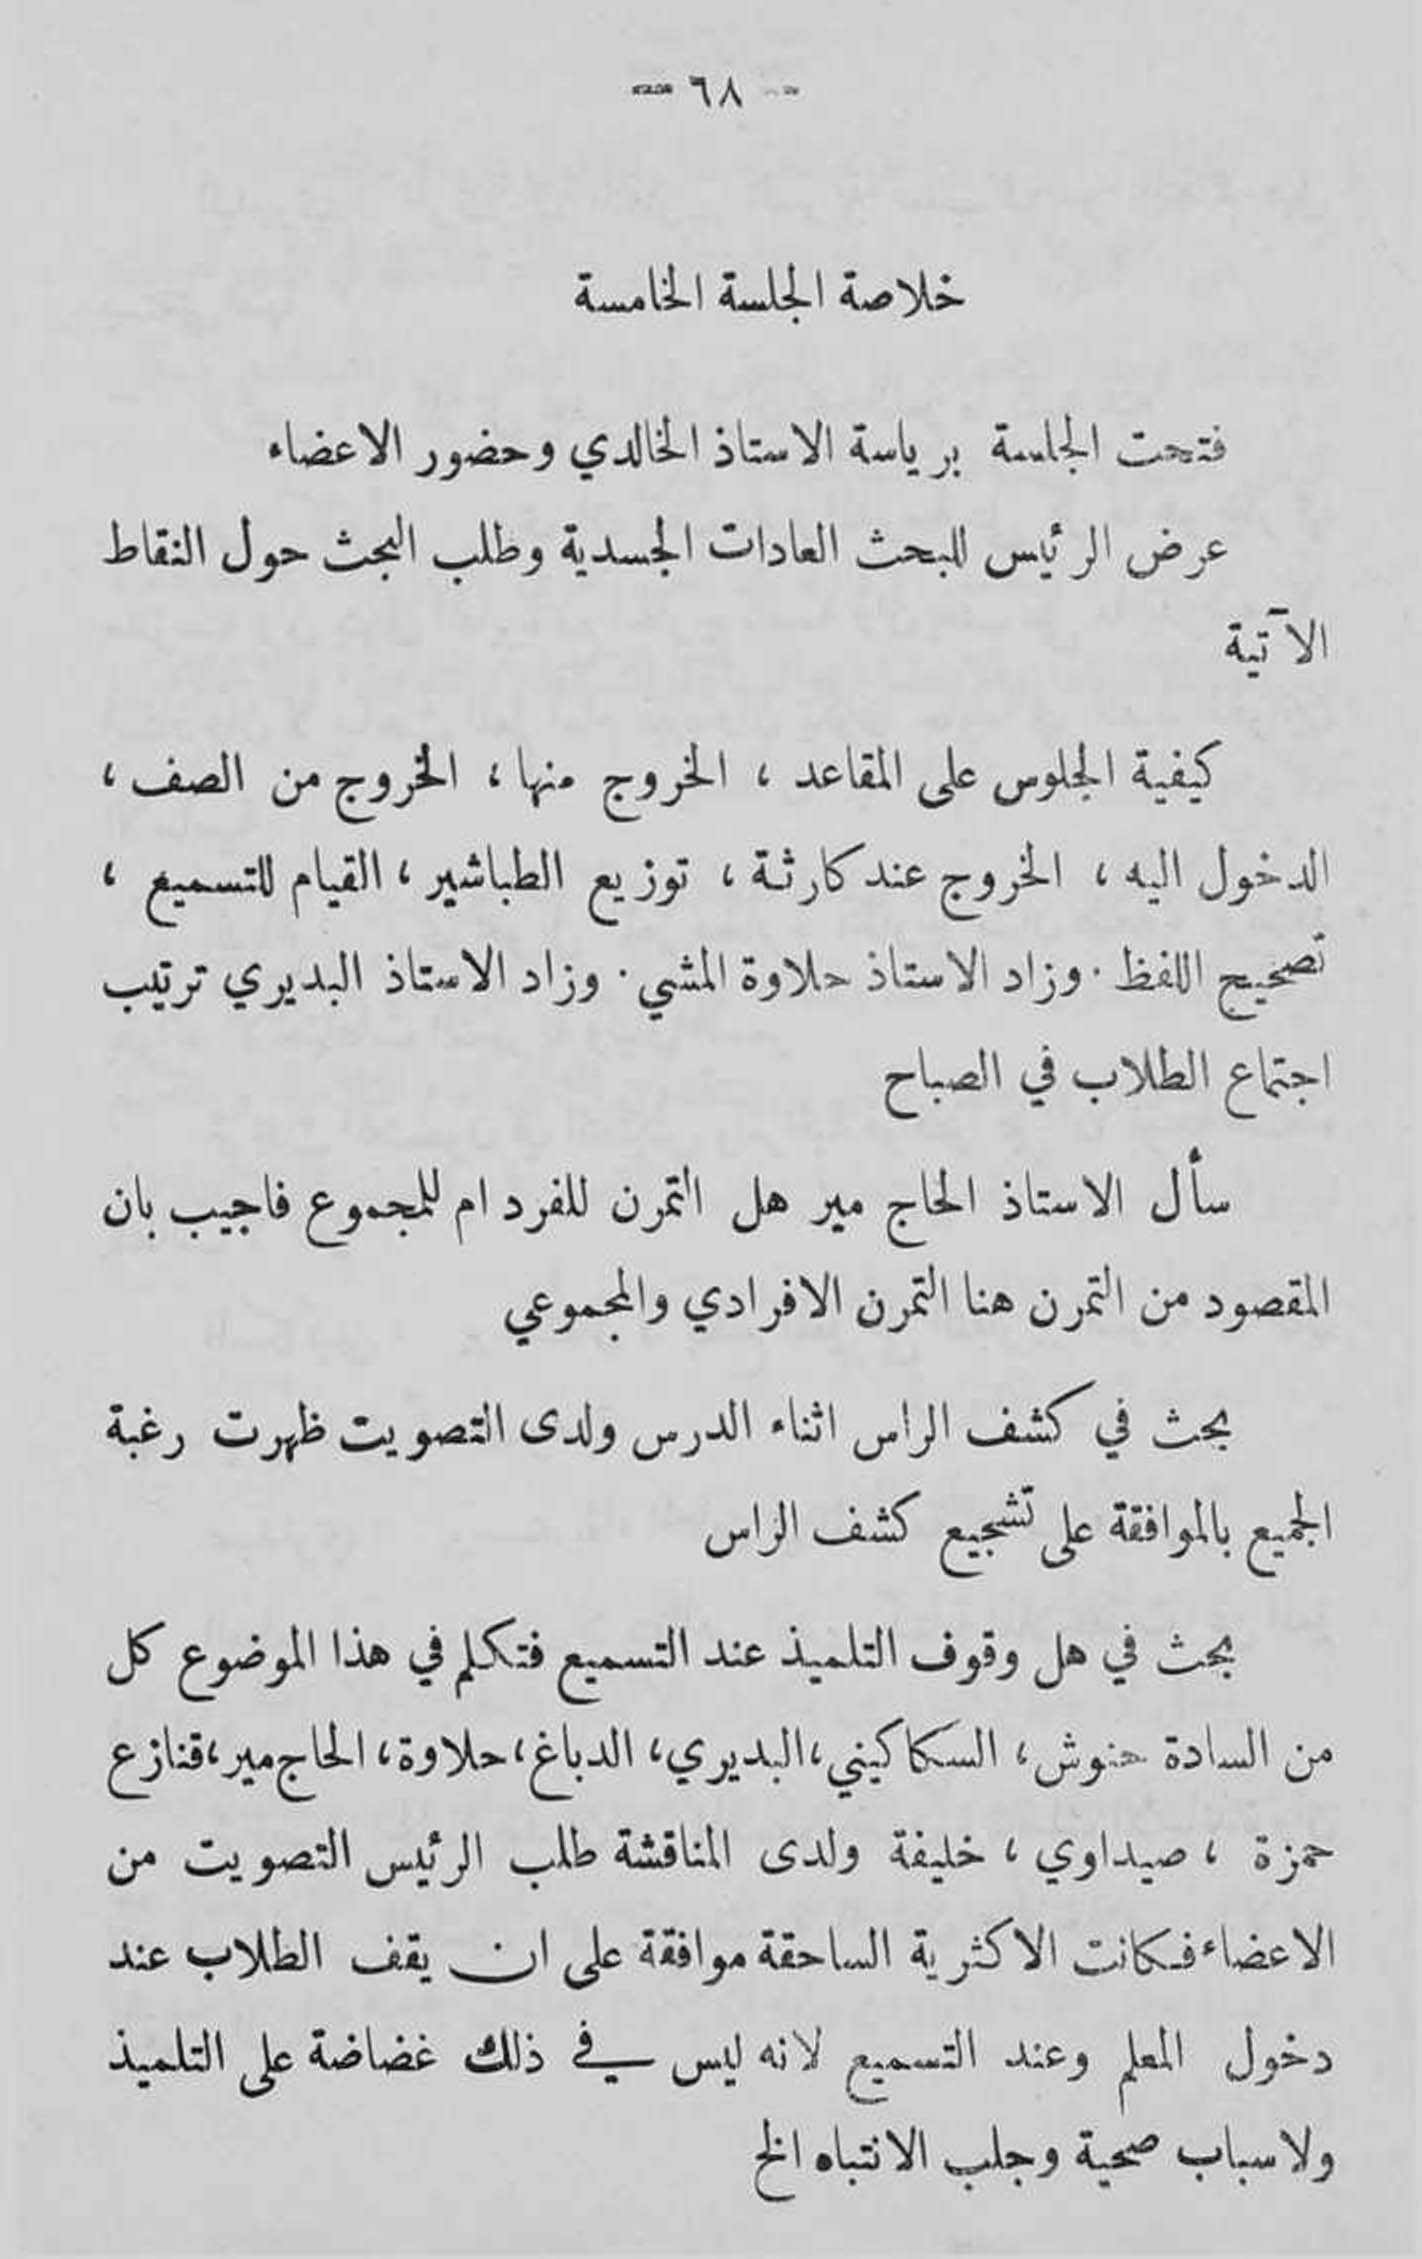 - ٦٨ -
خلاصة الجلسة الخامسة
فتحت الجلسة برياسة الاستاذ الخالدي وحضور الاعضاء
عرض الرئيس للبحث العادات الجسدية وطلب البحث حول النقاط
الآتية
كيفية الجلوس على المقاعد ، الخروج منها ، الخروج من الصف ،
الدخول اليه ، الخروج عند كارثة ، توزيع الطباشير ، القيام للتسميع ،
تصحيح اللفظ . وزاد الاستاذ حلاوة المشي . وزاد الاستاذ البديري ترتيب
اجتماع الطلاب في الصباح
سأل الاستاذ الحاج مير هل التمرن للفرد ام للمجموع فاجيب بان
المقصود من التمرن هنا التمرن الافرادي والمجموعي
بحث في كشف الراس اثناء الدرس ولدى التصويت ظهرت رغبة
الجميع بالموافقة على تشجيع كشف الراس
بحث في هل وقوف التلميذ عند التسميع فتكلم في هذا الموضوع كل
من السادة حنوش ، السكاكيني ، البديري ، الدباغ ، حلاوة ، الحاج مير ، قنازع
حمزة ، صيداوي ، خليفة ولدى المناقشة طلب الرئيس التصويت من
الاعضاء فكانت الاكثرية الساحقة موافقة على ان يقف الطلاب عند
دخول المعلم وعند التسميع لانه ليس في ذلك غضاضة على التلميذ
ولاسباب صحية وجلب الانتباه الخ